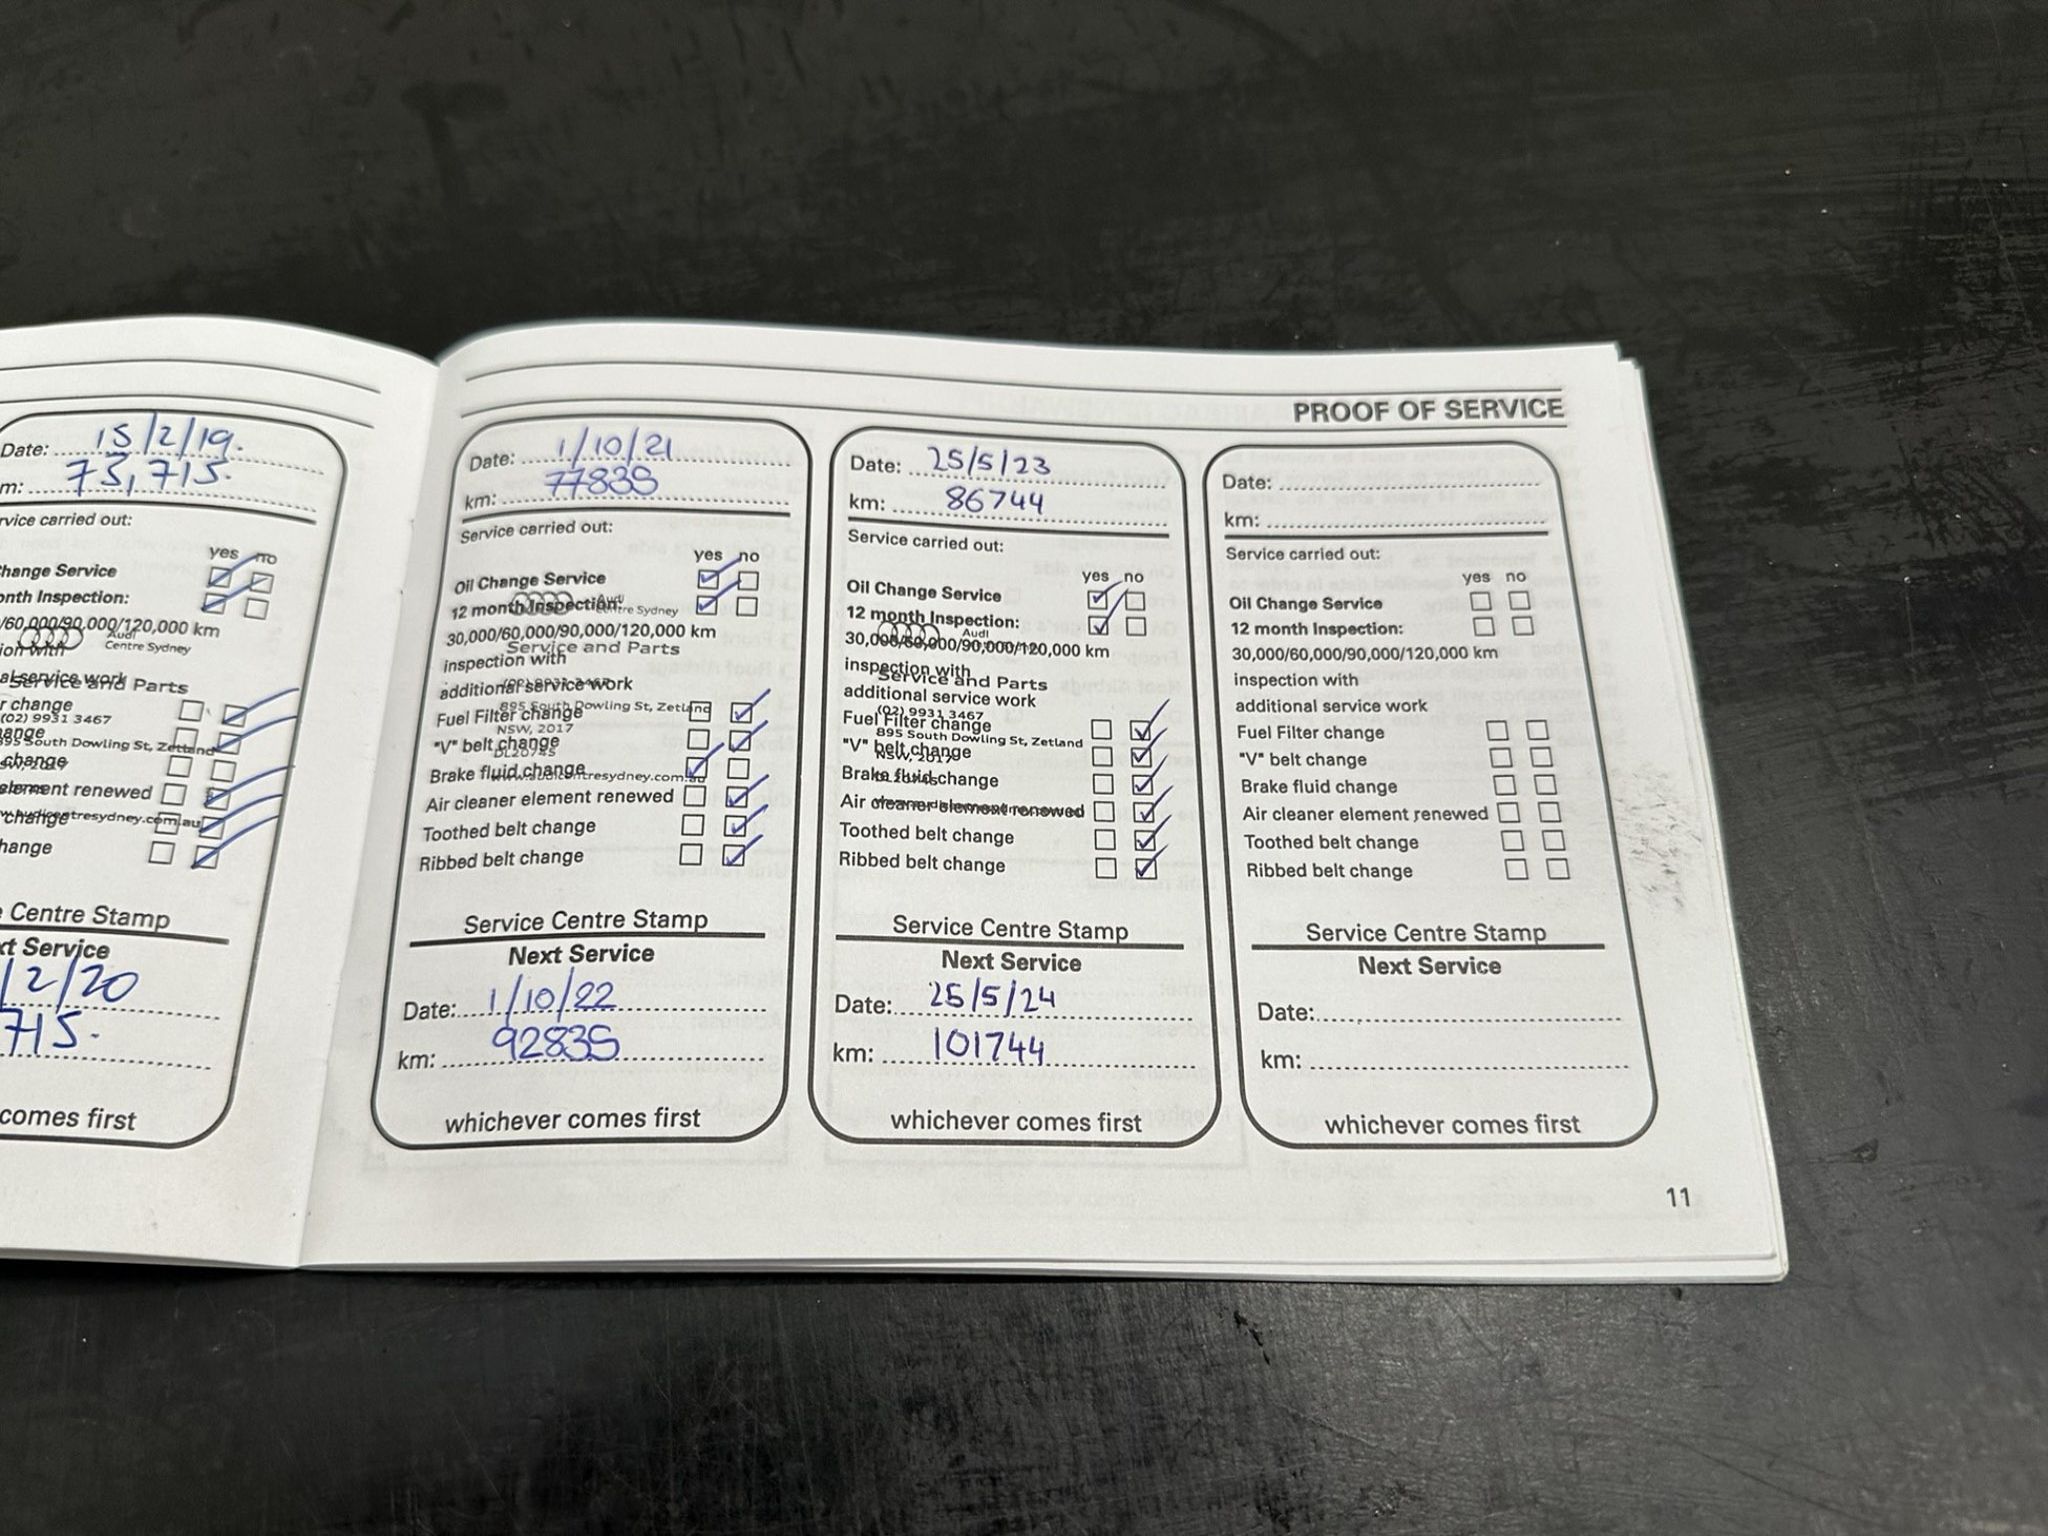 PROOF OF SERVICE
Date: 15/2/19.
m: 73,715.
rvice carried out:
yes no
hange Service
onth Inspection:
/60,000/90,000/120,000 km
Audi
Centre Sydney
ion with
al service work
Service and Parts
r change
(02) 9931 3467
ange
895 South Dowling St, Zetland
change
NSW, 2017
element renewed
www.audicentresydney.com.au
change
hange
Centre Stamp
xt Service
/2/20
715.
comes first
Date: 1/10/21
km: 77835
Service carried out:
yes no
Oil Change Service
12 month Inspection:
Audi
Centre Sydney
30,000/60,000/90,000/120,000 km
Service and Parts
inspection with
(02) 9931 3467
additional service work
895 South Dowling St, Zetland
Fuel Filter change
NSW, 2017
"V" belt change
DL20745
Brake fluid change
www.audicentresydney.com.au
Air cleaner element renewed
Toothed belt change
Ribbed belt change
Service Centre Stamp
Next Service
Date: 1/10/22
km: 92835
whichever comes first
Date: 25/5/23
km: 86744
Service carried out:
yes no
Oil Change Service
12 month Inspection:
Audi
30,000/60,000/90,000/120,000 km
inspection with
Service and Parts
additional service work
(02) 9931 3467
Fuel Filter change
895 South Dowling St, Zetland
"V" belt change
NSW, 2017
Brake fluid change
Air cleaner element renewed
Toothed belt change
Ribbed belt change
Service Centre Stamp
Next Service
Date: 25/5/24
km: 101744
whichever comes first
Date:
km:
Service carried out:
yes no
Oil Change Service
12 month Inspection:
30,000/60,000/90,000/120,000 km
inspection with
additional service work
Fuel Filter change
"V" belt change
Brake fluid change
Air cleaner element renewed
Toothed belt change
Ribbed belt change
Service Centre Stamp
Next Service
Date:
km:
whichever comes first
11